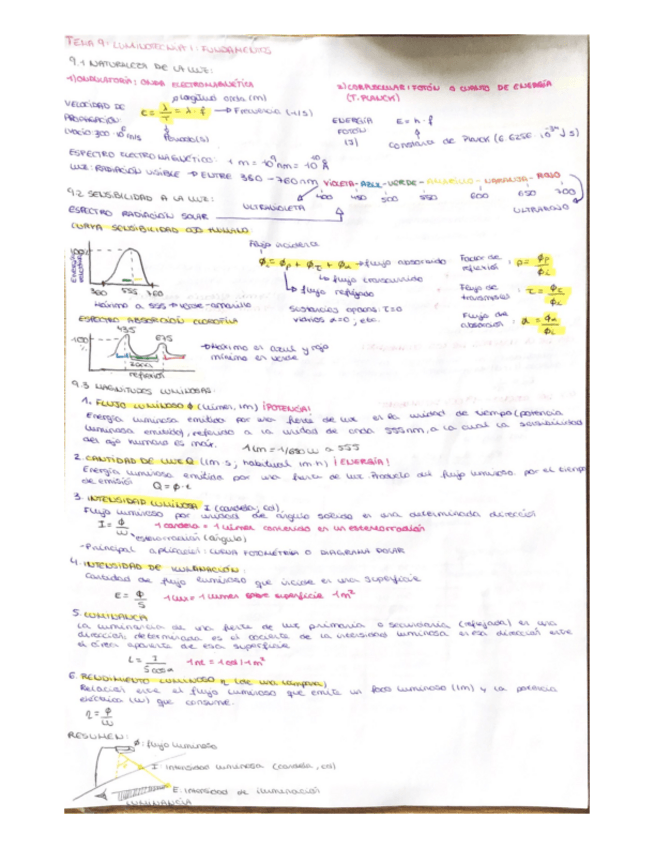 TEMA 9: LUMINOTECNIA I: FUNDAMENTOS
9.1 NATURALEZA DE LA LUZ:
1) ONDULATORIA: ONDA ELECTROMAGNÉTICA
2) CORPUSCULAR: FOTÓN O CUANTO DE ENERGÍA
(T. PLANCK)
longitud onda (m)
VELOCIDAD DE PROPAGACIÓN: c = λ/T = λ · f → Frecuencia (1/s)
Periodo (s)
ENERGÍA FOTÓN (J) E = h · f
Constante de Planck
ESPECTRO ELECTROMAGNÉTICO: 1 m = 10⁹ nm = 10¹⁰ Å
LUZ: RADIACIÓN VISIBLE → ENTRE 380 - 760 nm
VIOLETA - AZUL - VERDE - AMARILLO - NARANJA - ROJO
400 450 500 550 600 650 700
9.2 SENSIBILIDAD A LA LUZ:
ULTRAVIOLETA
ESPECTRO RADIACIÓN SOLAR
CURVA SENSIBILIDAD OJO HUMANO
Flujo incidente
ϕi = ϕρ + ϕτ + ϕα → flujo absorbido
flujo transmitido
flujo reflejado
Factor de reflexión: ρ = ϕρ/ϕi
Flujo de transmisión: τ = ϕτ/ϕi
Flujo de absorción: α = ϕα/ϕi
Sustancias opacas: τ=0
vidrios α=0, etc.
100%
380 555 760
Máximo a 555 → verde-amarillo
ESPECTRO ABSORCIÓN CLOROFILA
435 675
100%
zona
reflexión
→ Máximo en azul y rojo
mínimo en verde
9.3 MAGNITUDES LUMINOSAS:
1. FLUJO LUMINOSO ϕ (lumen, lm) ¡POTENCIA!
Energía luminosa emitida por una fuente de luz en la unidad de tiempo (potencia
luminosa emitida), referido a la unidad de onda 555 nm, a la cual la sensibilidad
del ojo humano es máx. 1 lm = 1/680 W a 555
2. CANTIDAD DE LUZ Q (lm·s; habitual lm·h) ¡ENERGÍA!
Energía luminosa emitida por una fuente de luz. Producto del flujo luminoso por el tiempo
de emisión Q = ϕ · t
3. INTENSIDAD LUMINOSA I (candela, cd)
Flujo luminoso por unidad de ángulo sólido en una determinada dirección
I = ϕ/ω 1 candela = 1 lumen contenido en un estereorradián
estereorradián (ángulo)
- Principal aplicación: CURVA FOTOMÉTRICA O DIAGRAMA POLAR
4. INTENSIDAD DE ILUMINACIÓN:
Cantidad de flujo luminoso que incide en una superficie
E = ϕ/S 1 lux = 1 lumen sobre superficie 1 m²
5. LUMINANCIA
La luminancia de una fuente de luz primaria o secundaria (reflejada) en una
dirección determinada es el cociente de la intensidad luminosa en esa dirección entre
el área aparente de esa superficie
L = I/S cos α 1 nt = 1 cd/1 m²
6. RENDIMIENTO LUMINOSO η (de una lámpara)
Relación entre el flujo luminoso que emite un foco luminoso (lm) y la potencia
eléctrica (W) que consume.
η = ϕ/W
RESUMEN:
ϕ: flujo luminoso
I: intensidad luminosa (candela, cd)
E: intensidad de iluminación
LUMINANCIA